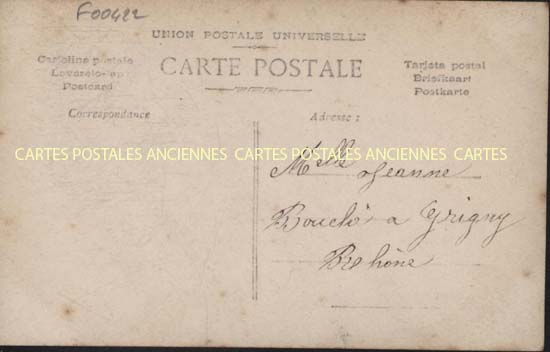 F00422
UNION POSTALE UNIVERSELLE
Cartolina postale
Levelező-lap
Postcard
CARTE POSTALE
Tarjeta postal
Briefkaart
Postkarte
Correspondance
Adresse :
CARTES POSTALES ANCIENNES CARTES POSTALES ANCIENNES CARTES
Melle Jeanne
Bouché a Grigny
Rhône